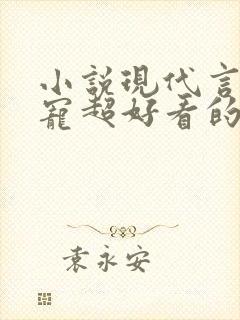 小說現代言
寵超好看的
袁永安